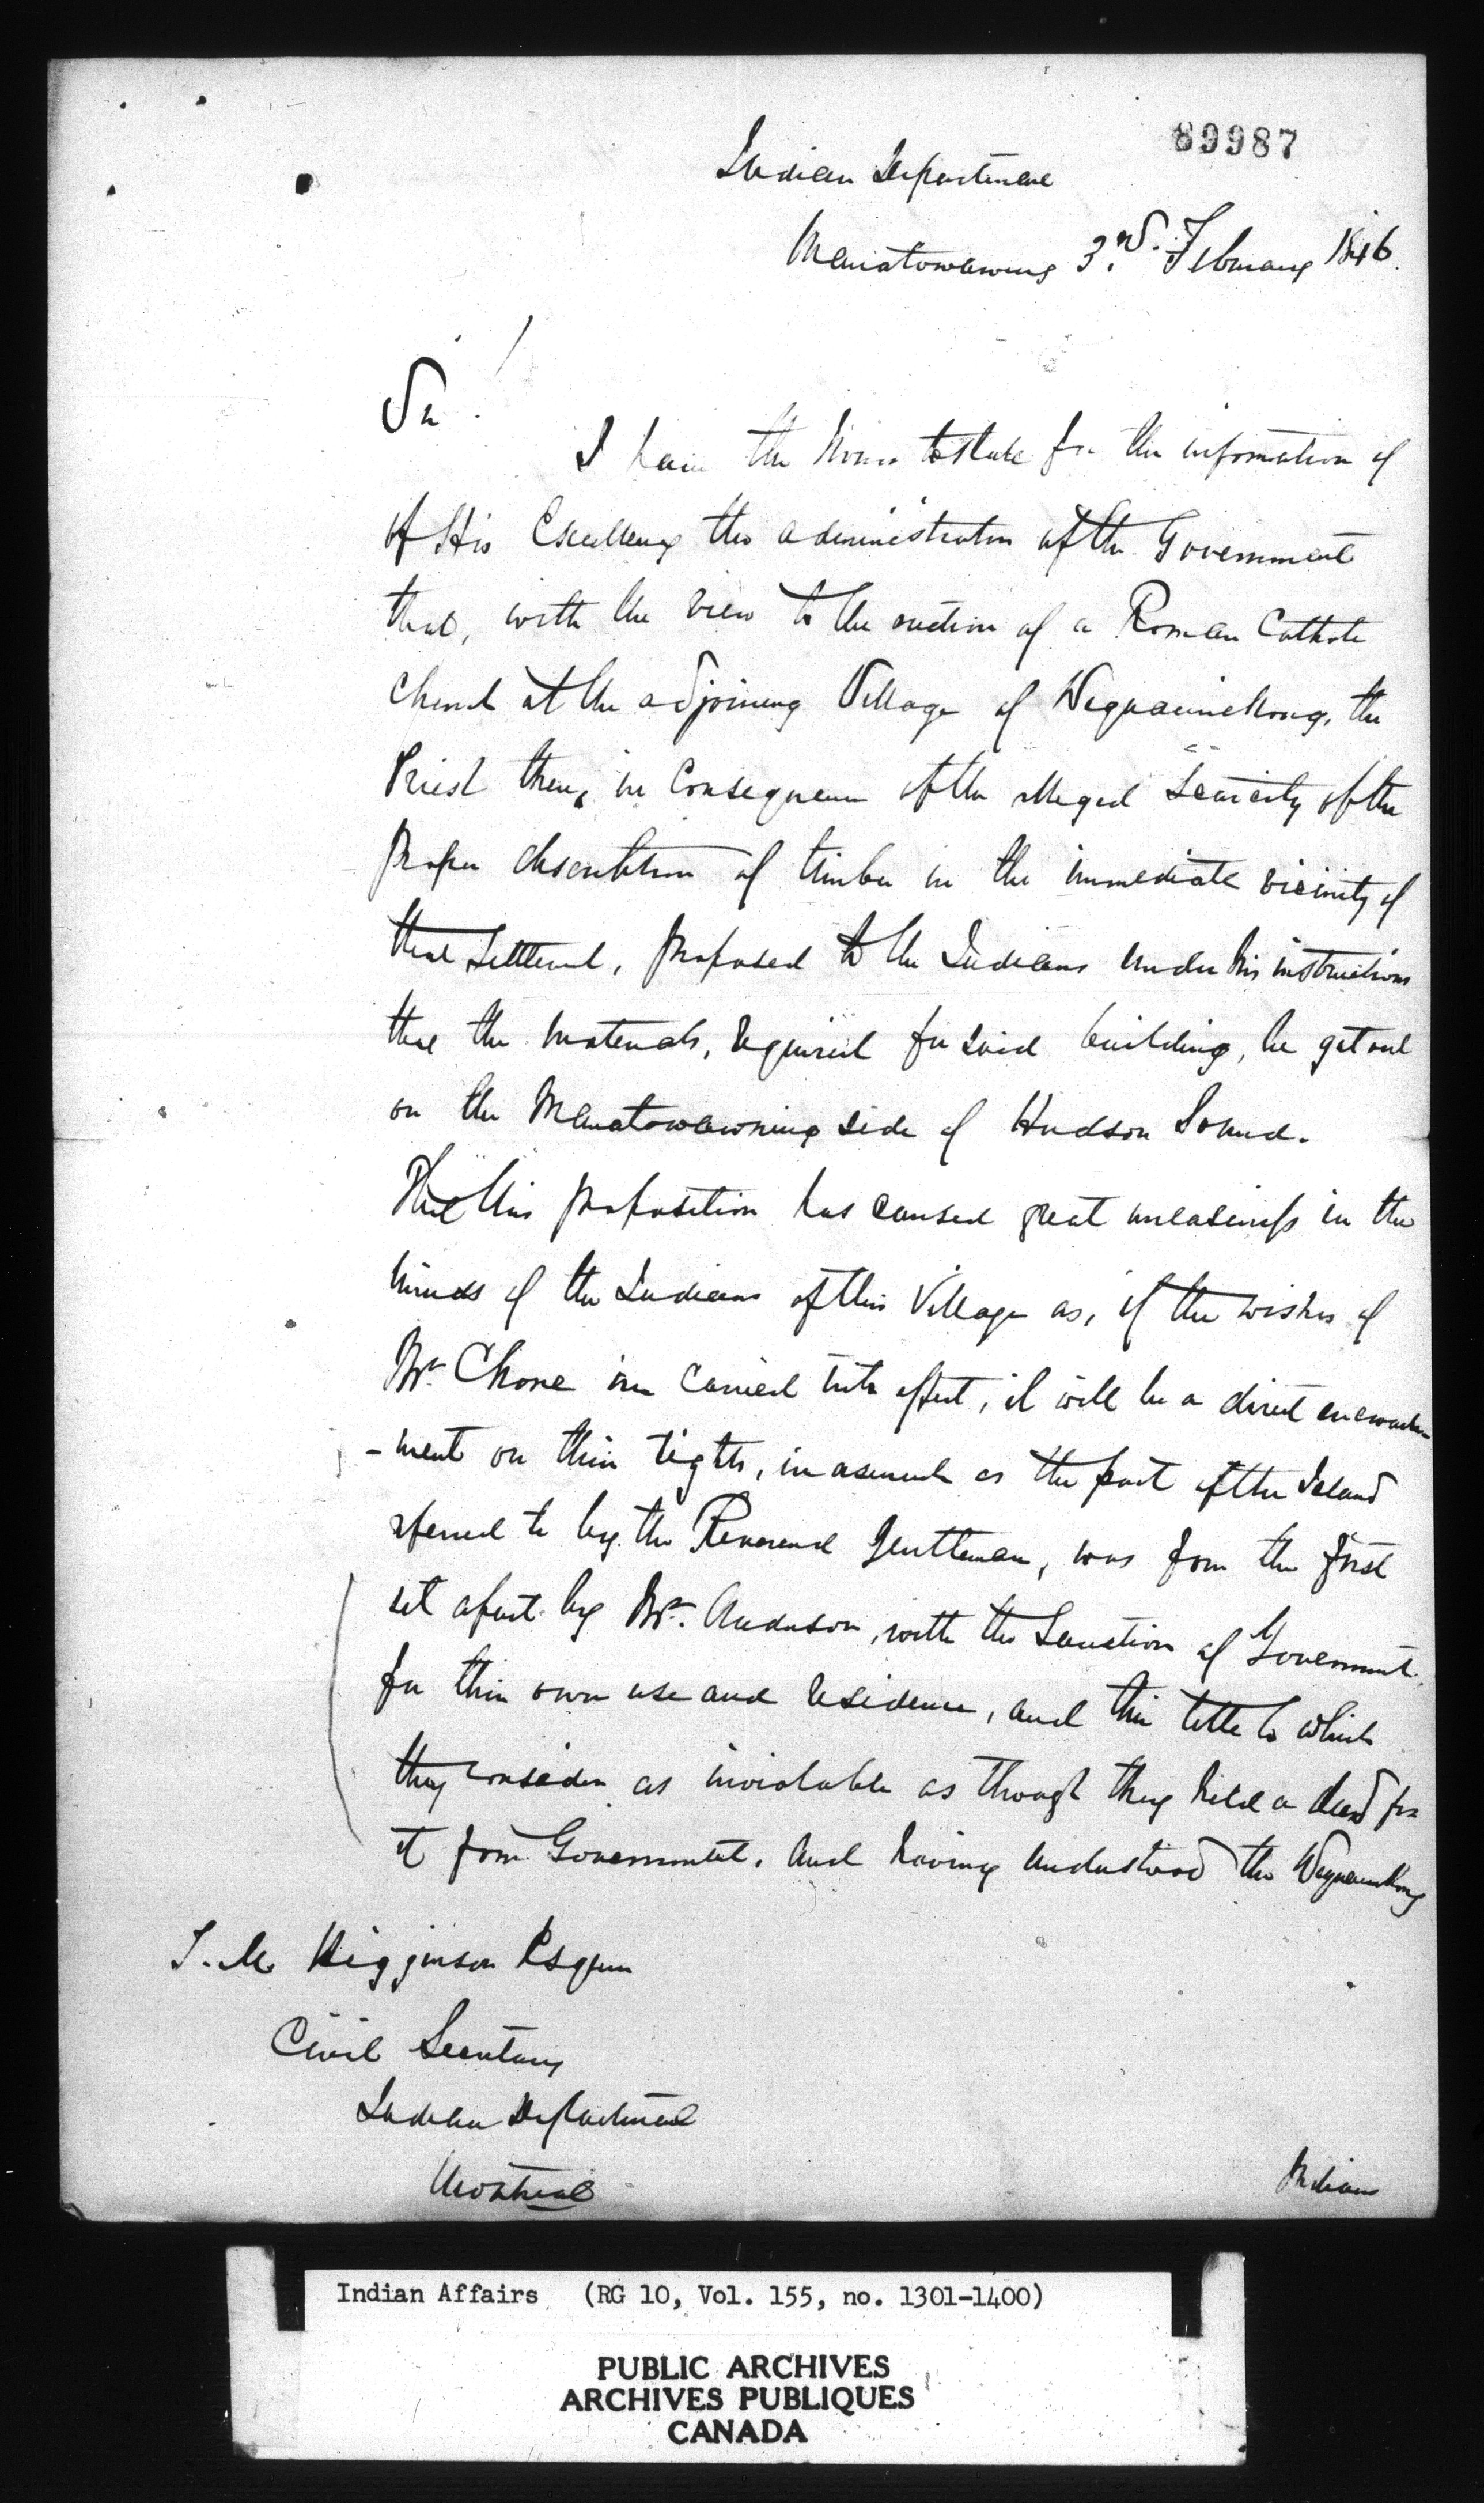 89987
Indian Department
Manatowawning 3rd. February 1846.
Sir /
I have the honor to state for the information of
of His Excellency the Administrator of the Government
that, with the view to the erection of a Roman Catholic
Church at the adjoining Village of Wequaimekong, the
Priest there, in consequence of the alleged scarcity of the
proper description of timber in the immediate vicinity of
that settlement, proposed to the Indians under his instructions
that the materials, required for said building, be got out
on the Manatowawning side of Hudson Sound.
That this proposition has caused great uneasiness in the
minds of the Indians of this Village as, if the wishes of
Mr. Chone are carried into effect, it will be a direct encroach-
-ment on their rights, inasmuch as the part of the Island
referred to by the Reverend Gentleman, was from the first
set apart by Mr. Anderson, with the Sanction of Government,
for their own use and residence, and their title to which
they consider as inviolable as though they held a deed for
it from Government. And having understood the Wequaimekong
J. M. Higginson Esquire
Civil Secretary
Indian Department
Montreal
Indians
Indian Affairs (RG 10, Vol. 155, no. 1301-1400)
PUBLIC ARCHIVES
ARCHIVES PUBLIQUES
CANADA